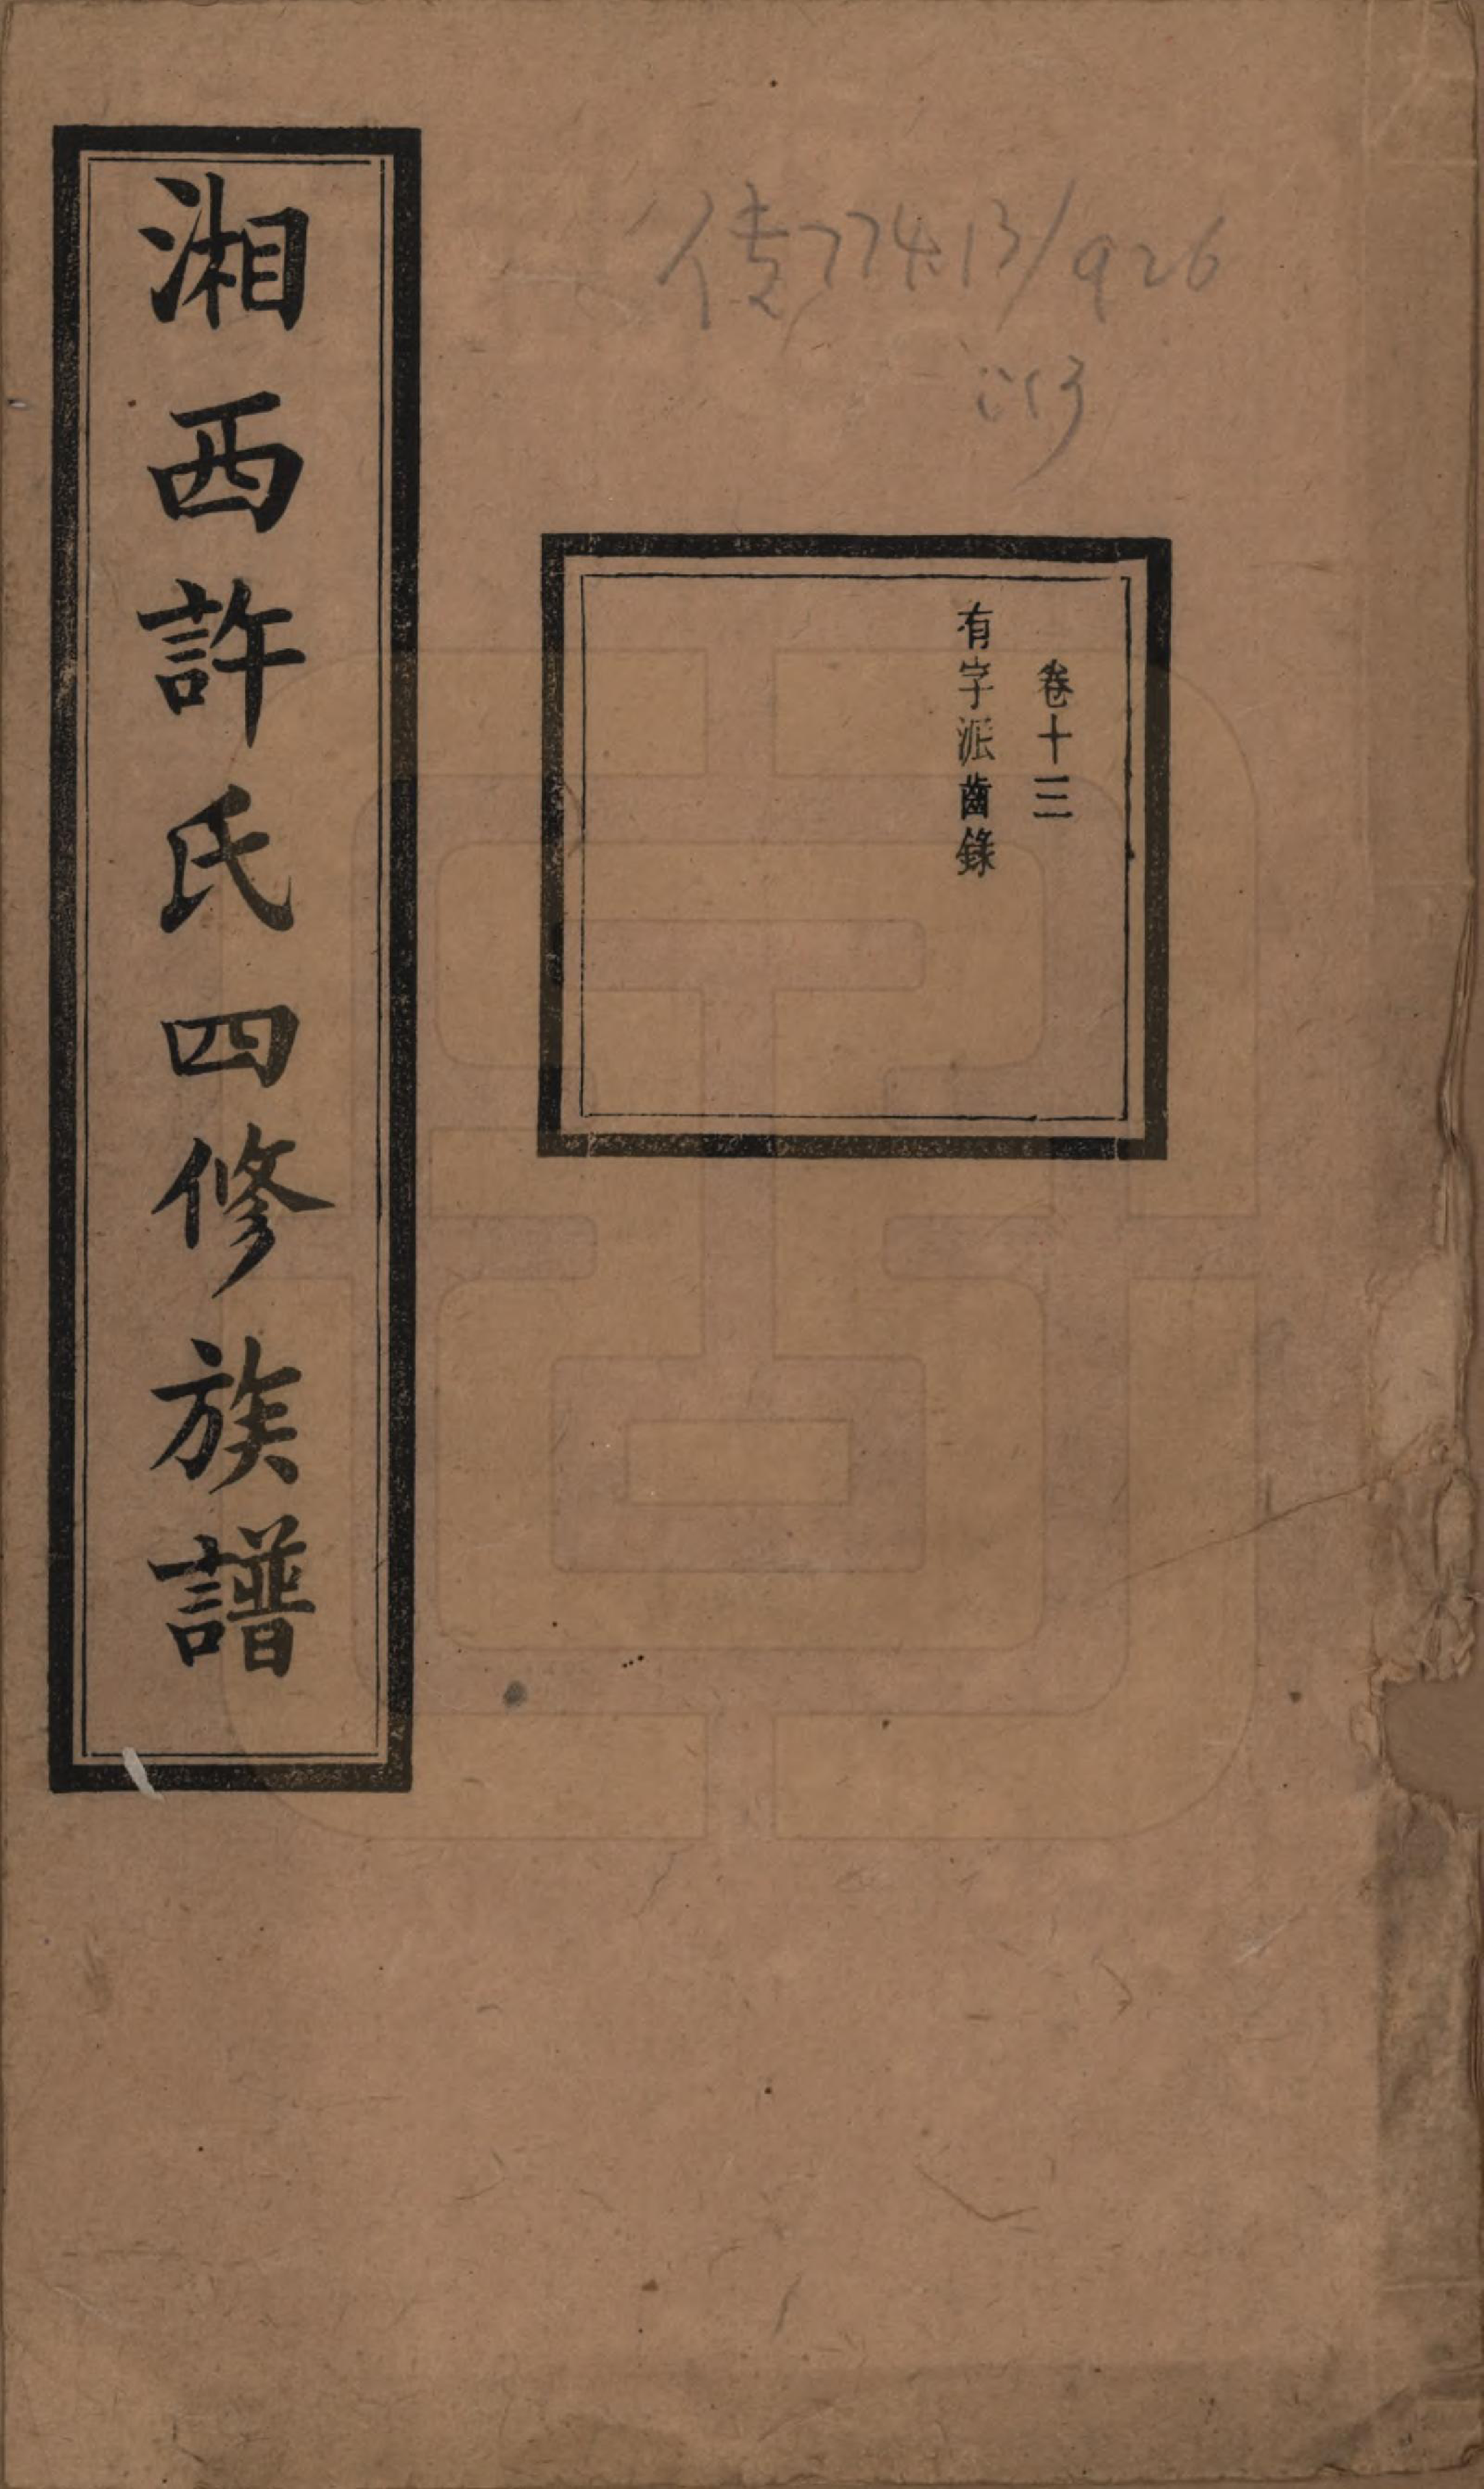 傳774.13/926
:13
卷十三
有字派齒錄
湘西許氏四修族譜